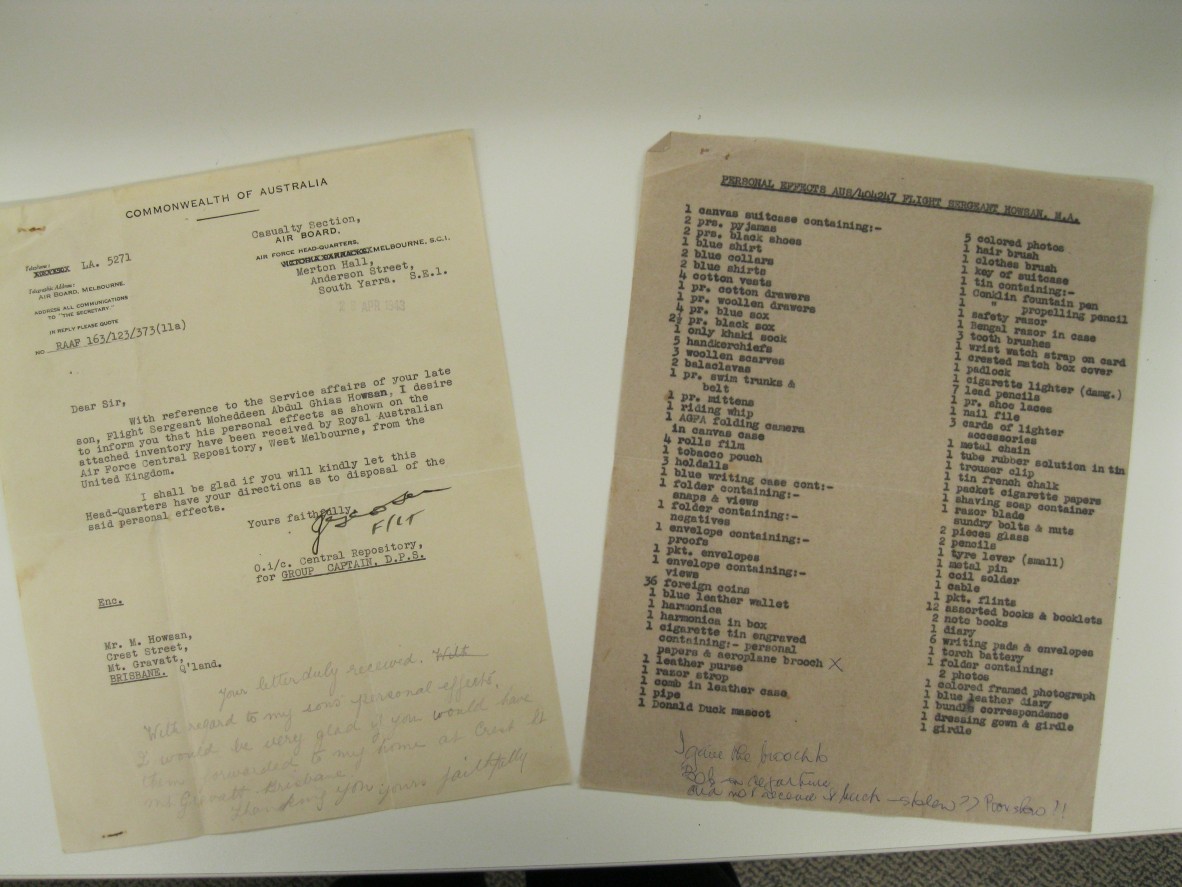 COMMONWEALTH OF AUSTRALIA
Casualty Section,
AIR BOARD,
AIR FORCE HEAD-QUARTERS,
VICTORIA BARRACKS, MELBOURNE, S.C.1.
Merton Hall,
Anderson Street,
South Yarra. S.E.1.
27 APR 1943
Telephone: LA. 5271
Telegraphic Address:
AIR BOARD, MELBOURNE.
ADDRESS ALL COMMUNICATIONS
TO "THE SECRETARY."
IN REPLY PLEASE QUOTE
NO. RAAF 163/123/373(11a)
Dear Sir,
With reference to the Service affairs of your late
son, Flight Sergeant Moheddeen Abdul Ghias Howsan, I desire
to inform you that his personal effects as shown on the
attached inventory have been received by Royal Australian
Air Force Central Repository, West Melbourne, from the
United Kingdom.
I shall be glad if you will kindly let this
Head-Quarters have your directions as to disposal of the
said personal effects.
Yours faithfully
F/LT
O.i/c. Central Repository,
for GROUP CAPTAIN, D.P.S.
Enc.
Mr. M. Howsan,
Crest Street,
Mt. Gravatt,
BRISBANE. Q'land.
Your letter duly received. With
With regard to my sons personal effects,
I would be very glad if you would have
them forwarded to my home at Crest St
Mt Gravatt Brisbane
Thanking you yours faithfully
PERSONAL EFFECTS AUS/404247 FLIGHT SERGEANT HOWSAN, M.A.
1 canvas suitcase containing:-
2 prs. pyjamas
2 prs. black shoes
1 blue shirt
2 blue collars
2 blue shirts
4 cotton vests
1 pr. cotton drawers
1 pr. woollen drawers
4 pr. blue sox
2½ pr. black sox
1 only khaki sock
5 handkerchiefs
3 woollen scarves
2 balaclavas
1 pr. swim trunks &
belt
1 pr. mittens
1 riding whip
1 AGFA folding camera
in canvas case
4 rolls film
1 tobacco pouch
3 holdalls
1 blue writing case cont:-
1 folder containing:-
snaps & views
1 folder containing:-
negatives
1 envelope containing:-
proofs
1 pkt. envelopes
1 envelope containing:-
views
36 foreign coins
1 blue leather wallet
1 harmonica
1 harmonica in box
1 cigarette tin engraved
containing:- personal
papers & aeroplane brooch X
1 leather purse
1 razor strop
1 comb in leather case
1 pipe
1 Donald Duck mascot
5 colored photos
1 hair brush
1 clothes brush
1 key of suitcase
1 tin containing:-
1 Conklin fountain pen
1 " propelling pencil
1 safety razor
1 Bengal razor in case
3 tooth brushes
1 wrist watch strap on card
1 crested match box cover
1 padlock
1 cigarette lighter (damg.)
7 lead pencils
1 pr. shoe laces
1 nail file
3 cards of lighter
accessories
1 metal chain
1 tube rubber solution in tin
1 trouser clip
1 tin french chalk
1 packet cigarette papers
1 shaving soap container
1 razor blade
sundry bolts & nuts
2 pieces glass
2 pencils
1 tyre lever (small)
1 metal pin
1 coil solder
1 cable
1 pkt. flints
12 assorted books & booklets
2 note books
1 diary
6 writing pads & envelopes
1 torch battery
1 folder containing:
2 photos
1 colored framed photograph
1 blue leather diary
1 bundle correspondence
1 dressing gown & girdle
1 girdle
I gave the brooch to
Bob on departure
and not received it back - stolen??